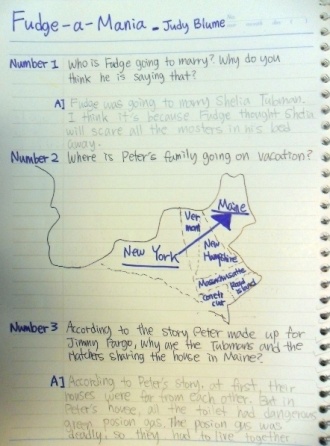 Fudge-a-Mania - Judy Blume
Number 1 Who is Fudge going to marry? Why do you
think he is saying that?
A] Fudge was going to marry Shelia Tubman.
I think it's because Fudge thought Shelia
will scare all the mosters in his bed
away.
Number 2 Where is Peter's family going on vacation?
Maine
Ver
mont
New York
New
Hampshire
Massachusette
Road
island
Conecti
cut
Number 3 According to the story Peter made up for
Jimmy Fargo, why are the Tubmans and the
Hatchers sharing the house in Maine?
A] According to Peter's story, at first, their
houses were far from each other. But in
Peter's house, all the toilet had dangerous
green posion gas. The posion gas was
deadly, so they had to live together